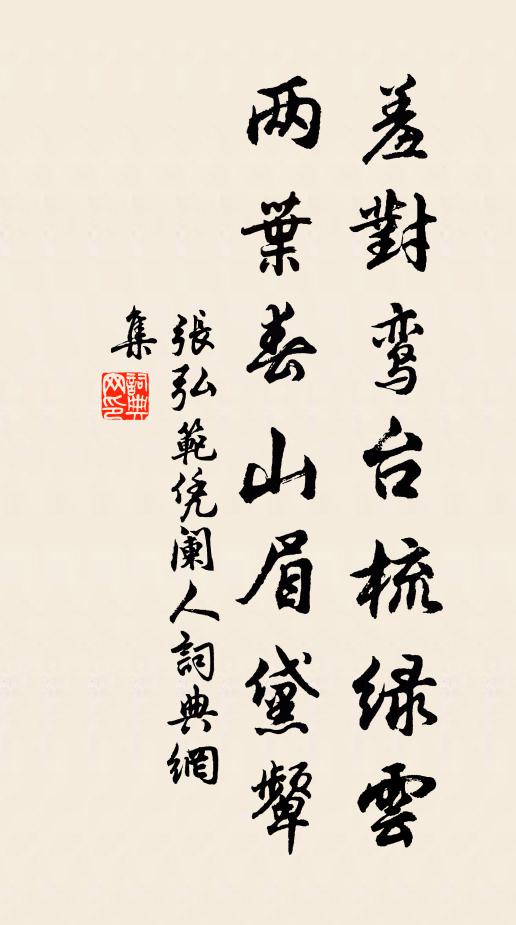 羞對鸾台梳绿雲
两葉春山眉黛顰
張弘範凭闌人詞典網
集
詞典
网印